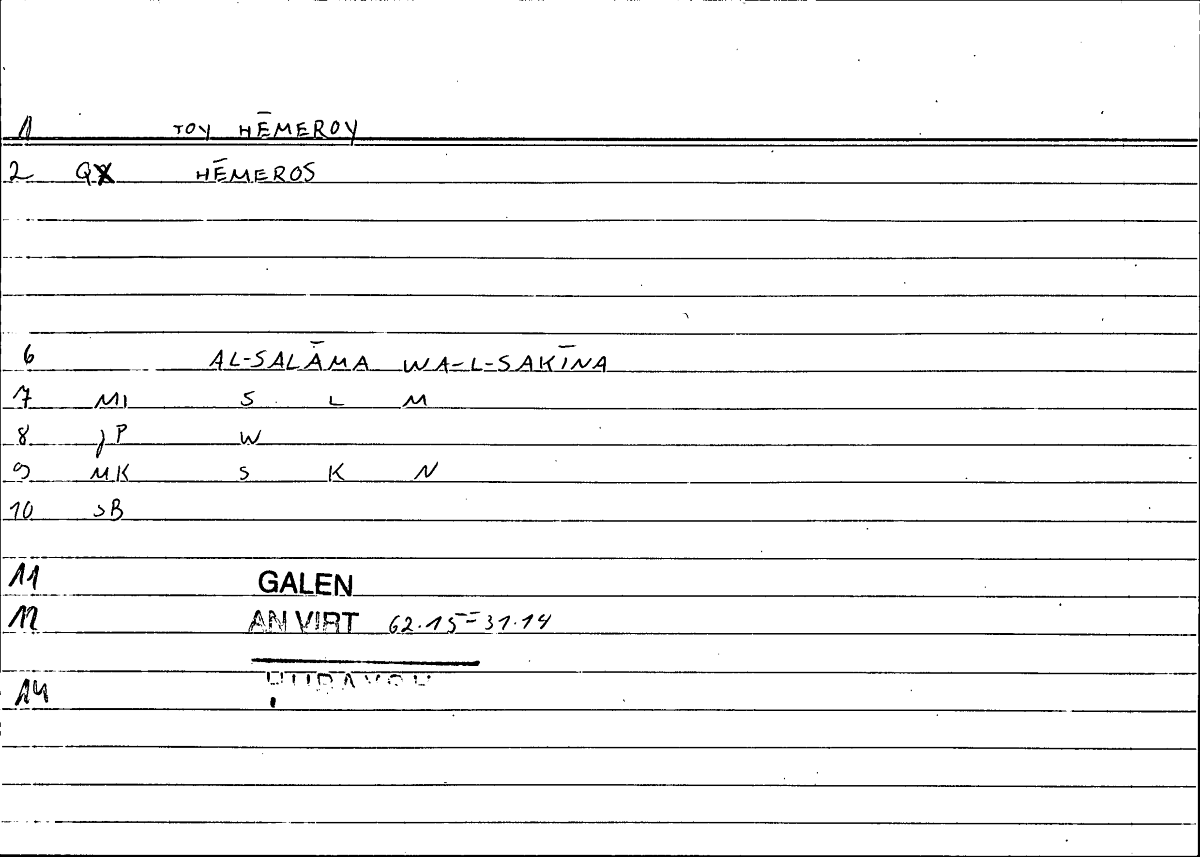 1 TOY HĒMEROY
2 QX HĒMEROS
6 AL-SALĀMA WA-L-SAKĪNA
7 MI S L M
8 JP W
9 MK S K N
10 SB
11 GALEN
12 AN VIRT 62.15=31.14
14